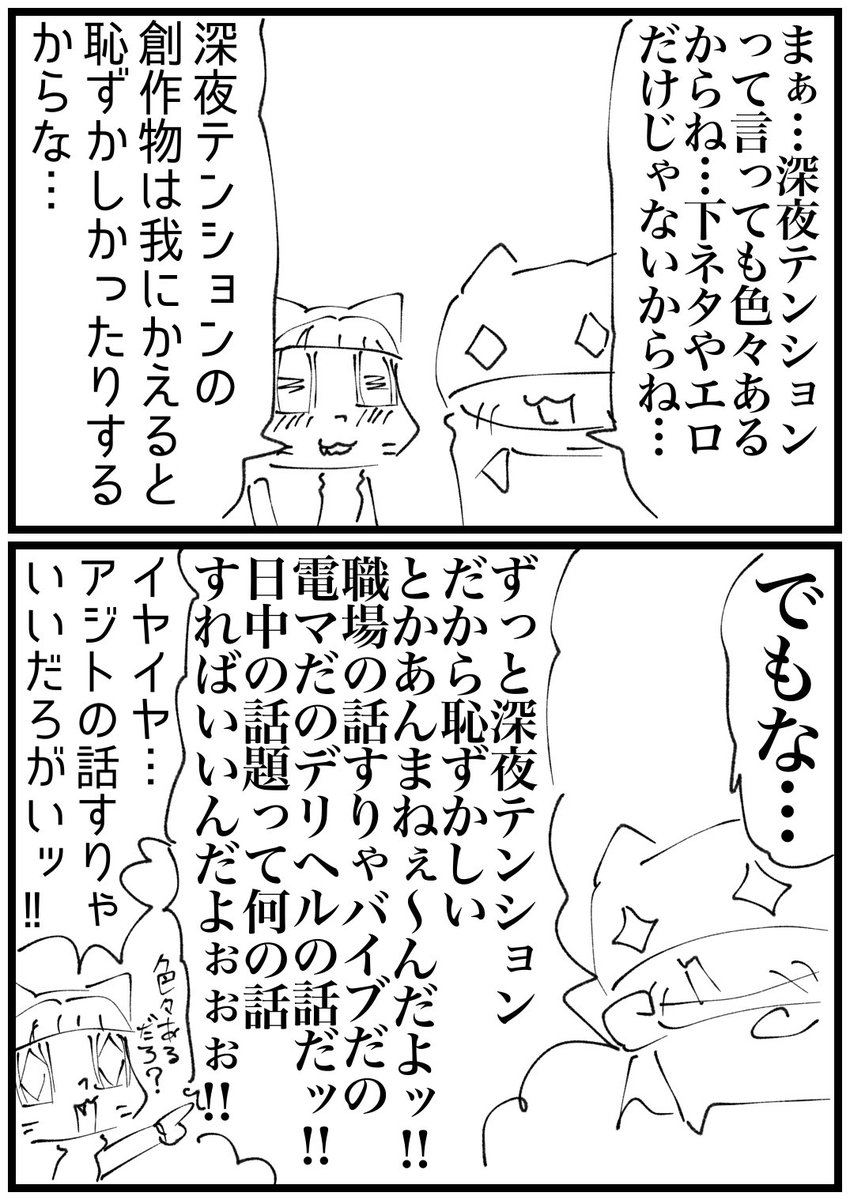 まぁ…深夜テンション
って言っても色々ある
からね…下ネタやエロ
だけじゃないからね…
深夜テンションの
創作物は我にかえると
恥ずかしかったりする
からな…
でもな…
ずっと深夜テンション
だから恥ずかしい
とかあんまねぇ～んだよッ!!
職場の話すりゃバイブだの
電マだのデリヘルの話だッ!!
日中の話題って何の話
すればいいんだよぉぉぉぉ!!
イヤイヤ…
アジトの話すりゃ
いいだろがいッ!!
色々ある
だろ？